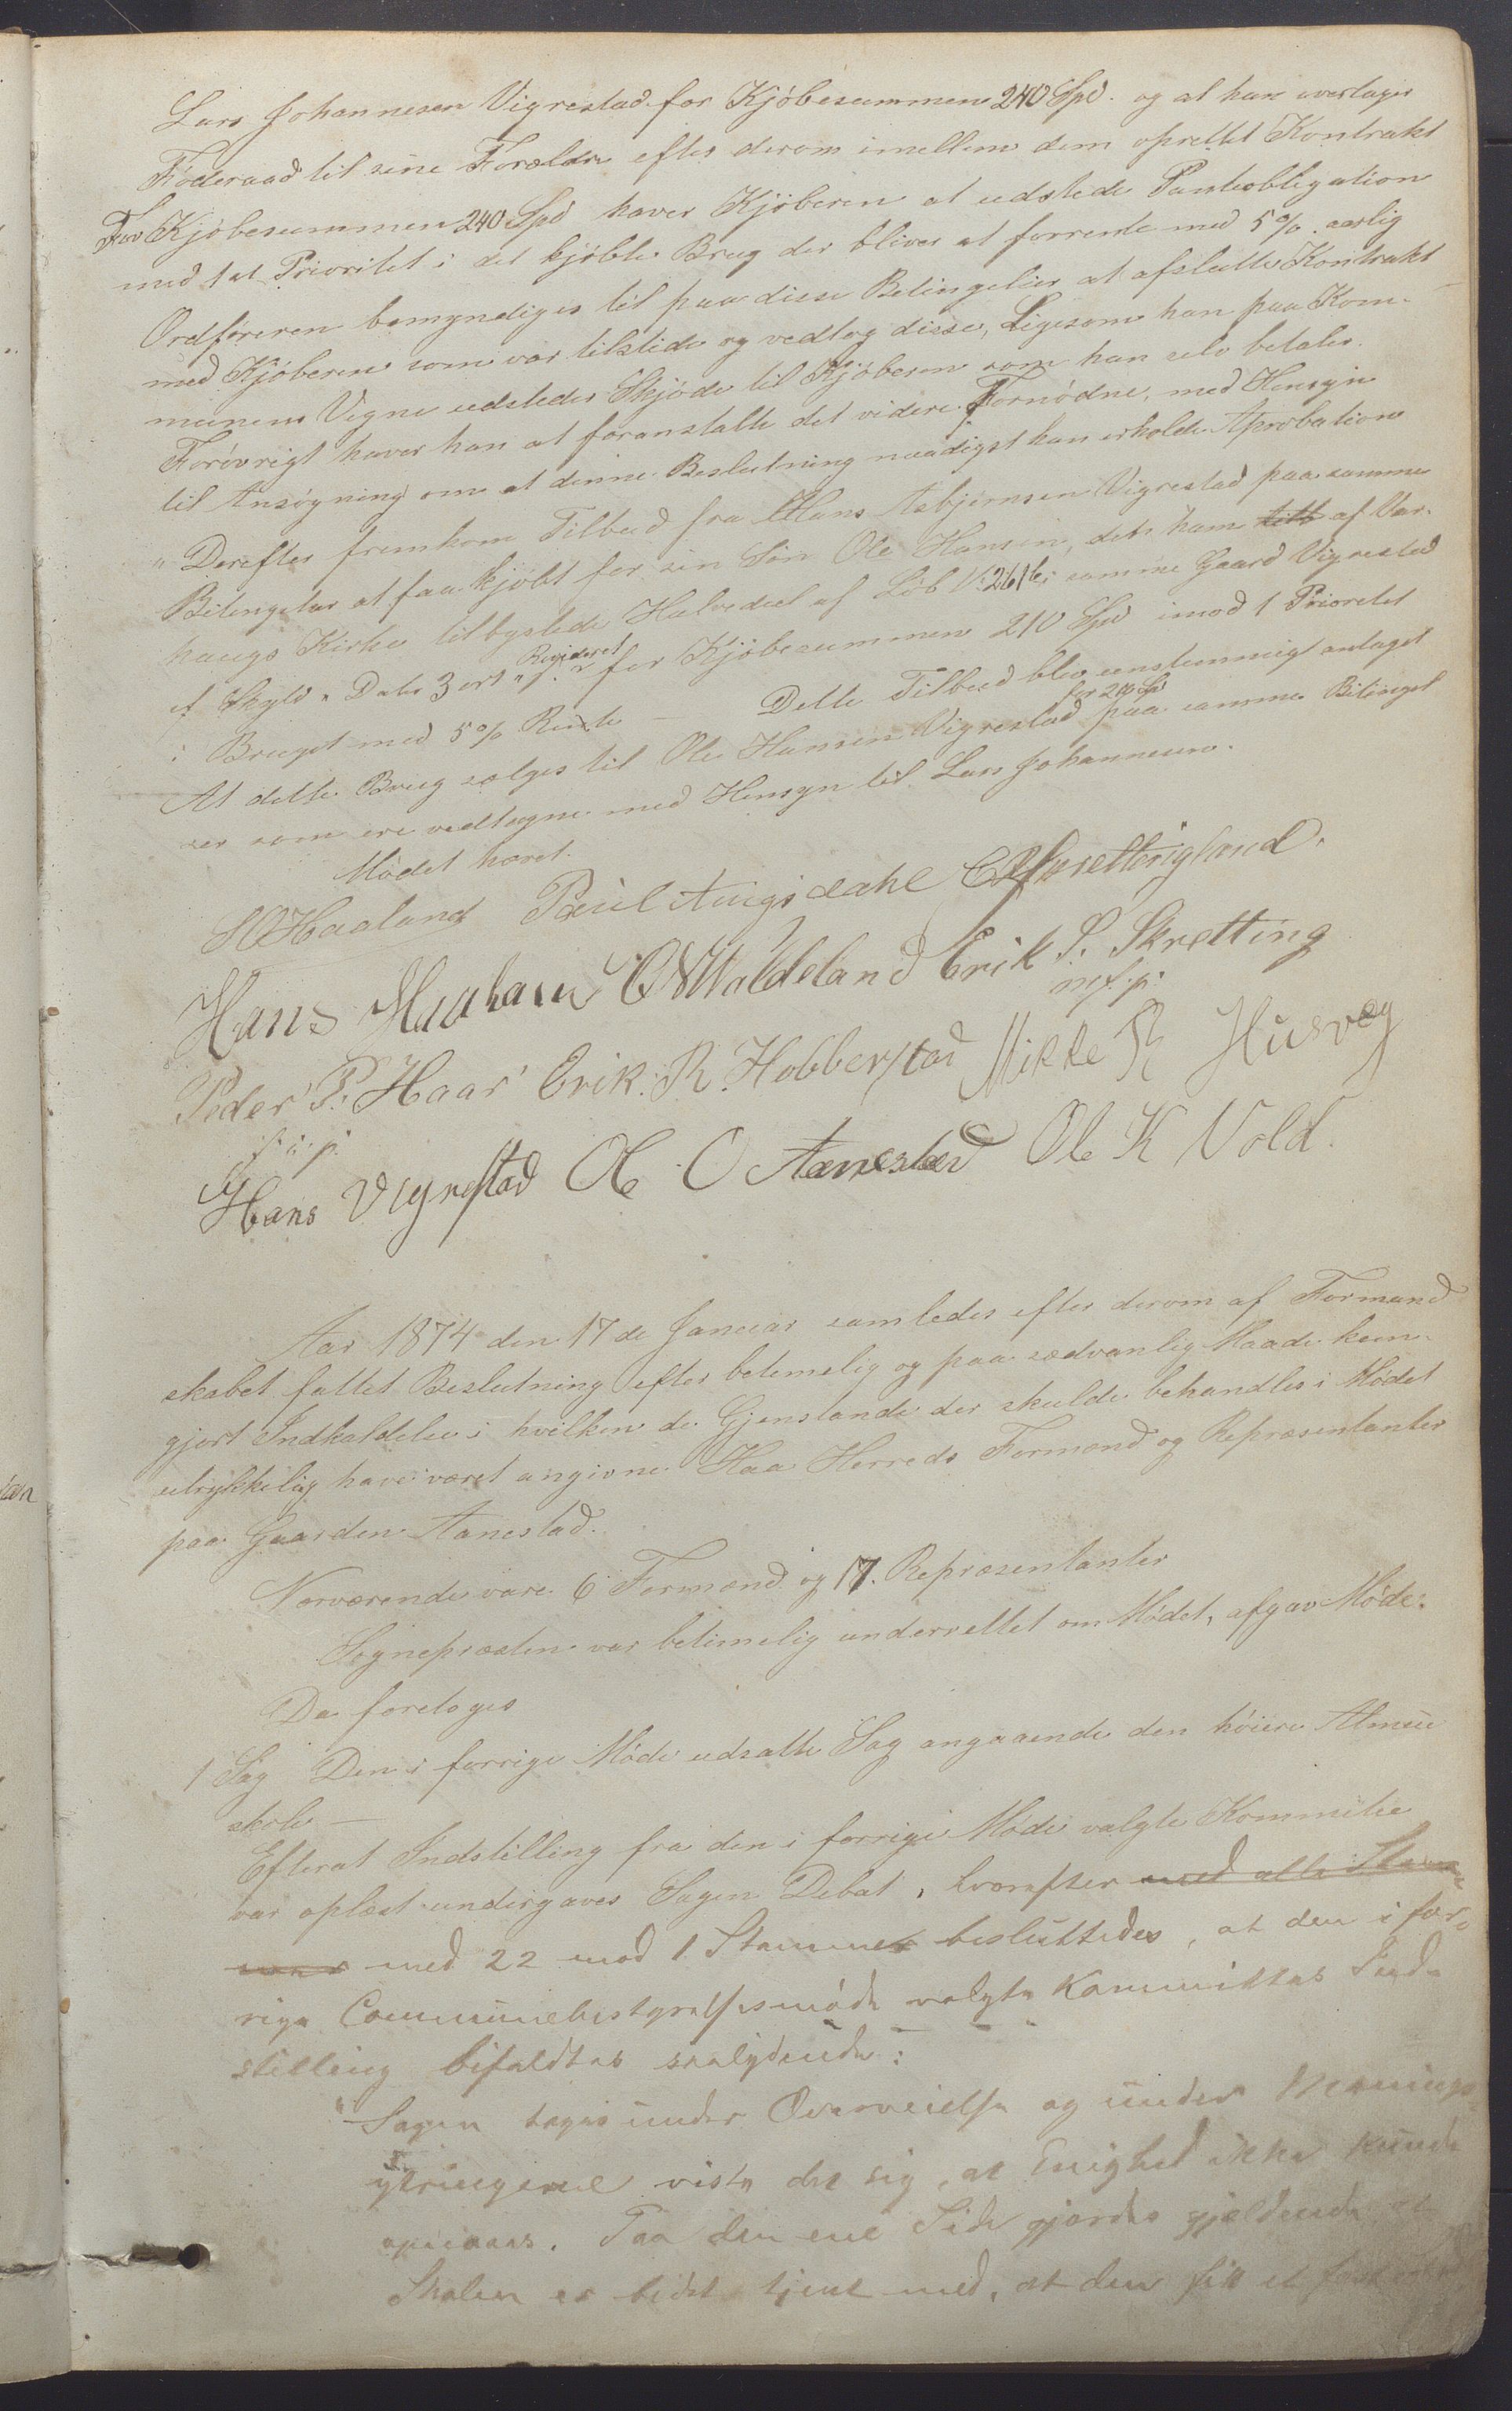 Lars Johannesen Vigrestad for Kjöbesummen 240 Spd. og at han overtager
Föderaad til sine Forældre efter derom imellem dem oprettet Kontrakt
For Kjöbesummen 240 Spd haver Kjöberen at udstede Panteobligation
med 1st Prioritet i det kjöbte Brug der bliver at forrente med 5% aarlig
Ordföreren bemyndiges til paa disse Betingelser at afslutte Kontrakt
med Kjöberen som var tilstede og vedtog disse, Ligesom han paa Kom-
munens Vegne udsteder Skjöde til Kjöberen som han selv betaler.
Forövrigt haver han at foranstalte det videre Fornödne, med Hensyn
til Ansögning om at denne Beslutning naadigst kan erholde Aprobation
" Derefter fremkom Tilbud fra Hans Asbjörnsen Vigrestad paa samme
Betingelser at faa kjöbt for sin Sön Ole Hansen, det ham af Var-
haugs Kirke tilbyslede Halvedeel af Löb No 261 b i samme Gaard Vigrestad
af Skyld " Daler 3 ort " s. Revideret for Kjöbesummen 210 Spd imod 1 Prioritet
i Bruget med 5% Rente — Dette Tilbud blev enstemmigt antaget
At dette Brug sælges til Ole Hansen Vigrestad for 210 Spd paa samme Betingel
ser som ere vedtagne med Hensyn til Lars Johannesen.
Mödet hævet.
SO Haaland Paul Augsdahl
Hans Haaland O N Waldeland Erik S. Skretting
m. f. p.
Peder P. Haar Erik. R. Hobberstad Mikkel R Husvæg
i. p.
Hans Vigrestad Ole O Aanestad Ole K Vold.
Aar 1874 den 17de Januar samledes efter derom af Formand
skabet fattet Beslutning efter betimelig og paa sædvanlig Maade kun-
gjort Indkaldelse i hvilken de Gjenstande der skulde behandles i Mödet
utrykkelig have været angivne Haa Herreds Formænd og Repræsentanter
paa Gaarden Aanestad.
Nærværende vare 6 Formænd og 17. Repræsentanter
Sognepræsten var betimelig underrettet om Mödet, afgav Möde.
Da foretoges
1 Sag Den i forrige Möde udsatte Sag angaaende den höiere Almue
skole —
Efterat Indstilling fra den i forrige Möde valgte Kommitee
var oplæst undergaves Sagen Debat, hvorefter med alle Stem
mer med 22 mod 1 Stemmer besluttedes, at den i for-
rige Communebestyrelsesmöde valgte Kommittees Ind-
stilling bifaldtes saalydende:
"Sagen toges under Overveielse og under Menings-
ytringerne viste det sig, at Enighed ikke kunde
opnaaes. Paa den ene Side gjordes gjeldende at
Skolen er bedst tjent med, at den fik et fast